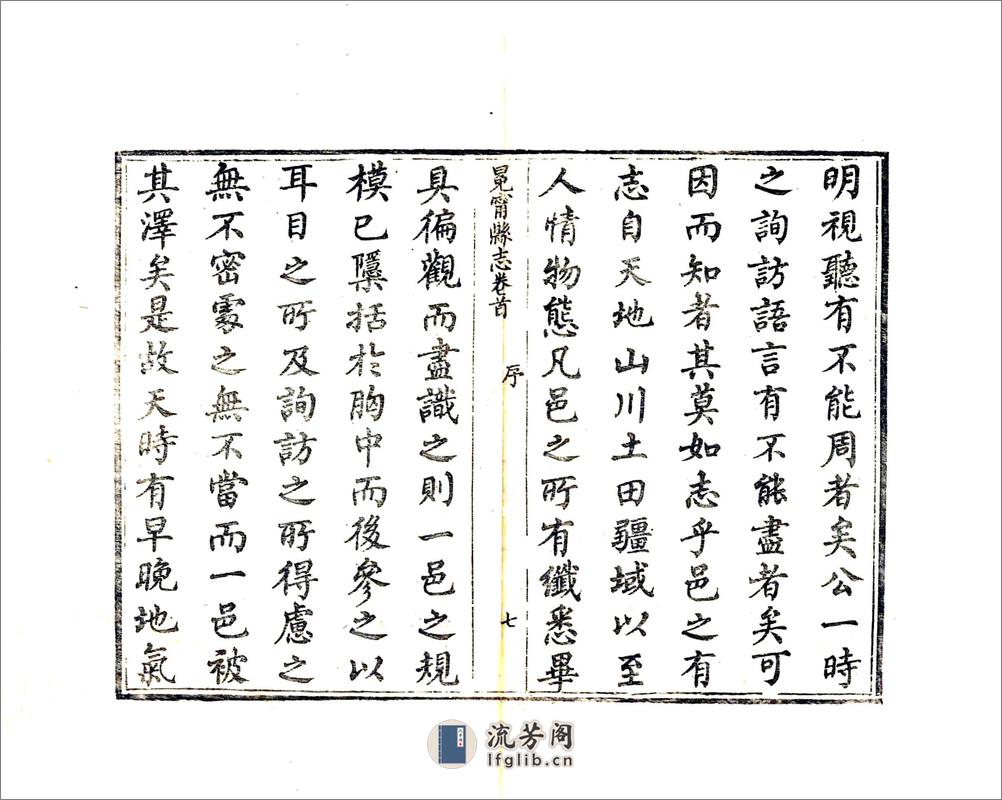 明視聽有不能周者矣公一時
之詢訪語言有不能盡者矣可
因而知者其莫如志乎邑之有
志自天地山川土田疆域以至
人情物態凡邑之所有纖悉畢
冕寧縣志卷首
序
七
具徧觀而盡識之則一邑之規
模已隱括於胸中而後參之以
耳目之所及詢訪之所得慮之
無不密處之無不當而一邑被
其澤矣是故天時有早晚地氣
流芳阁
lfglib.cn